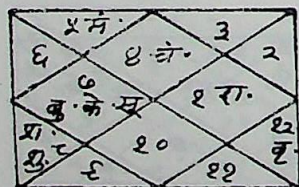 ५ मं.
३
६
४ चं.
२
७
बु. के. सू
१ रा.
श. ८
शु.
१०
१२
९
११